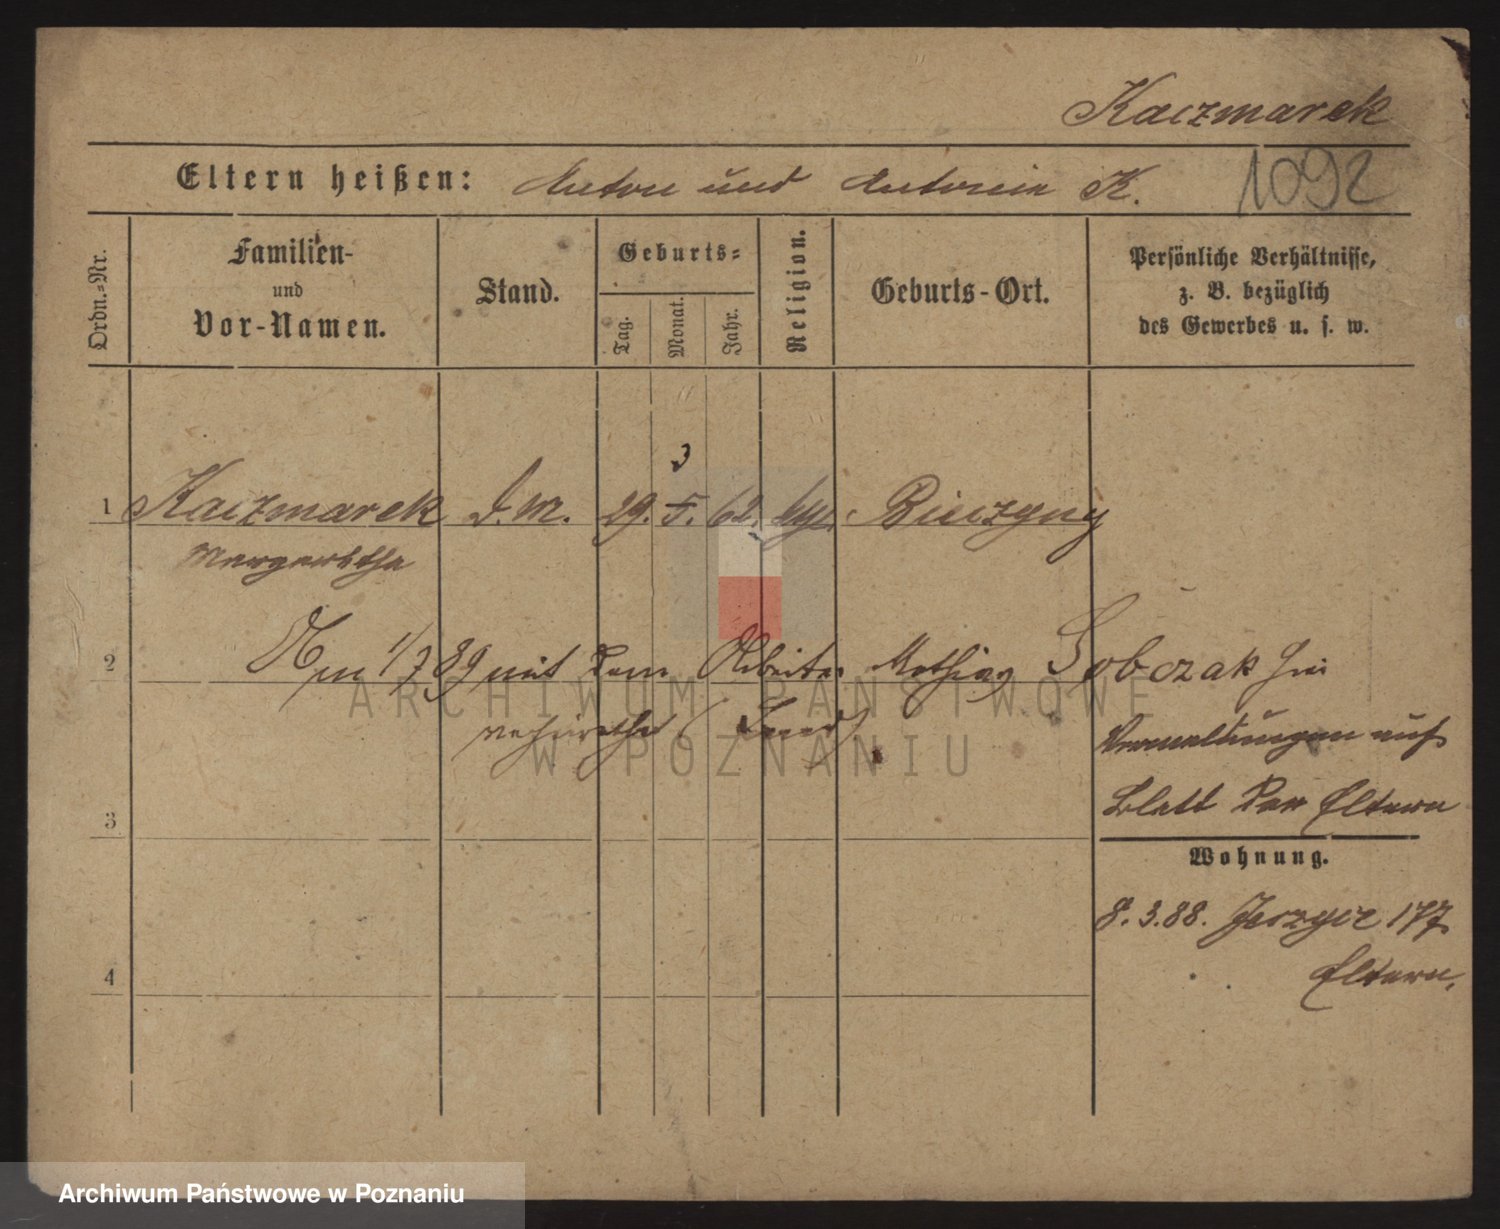 Kaczmarek
Eltern heißen: Anton und Antonia K.
1092
Ordn.=Nr.
Familien-
und
Vor-Namen.
Stand.
Geburts=
Tag.
Monat.
Jahr.
Religion.
Geburts-Ort.
Persönliche Verhältnisse,
z. B. bezüglich
des Gewerbes u. s. w.
3
1 Kaczmarek D. M. 29. 5. 62. Bieczyny
Margaretha
2 Am 1/7 89 mit dem Arbeiter Mathias Sobczak hier
verheirathet
Vermeldungen auf
Blatt der Eltern
3
Wohnung.
8. 3. 88. Jerzyce 177
4 Eltern.
ARCHIWUM PAŃSTWOWE
W POZNANIU
Archiwum Państwowe w Poznaniu